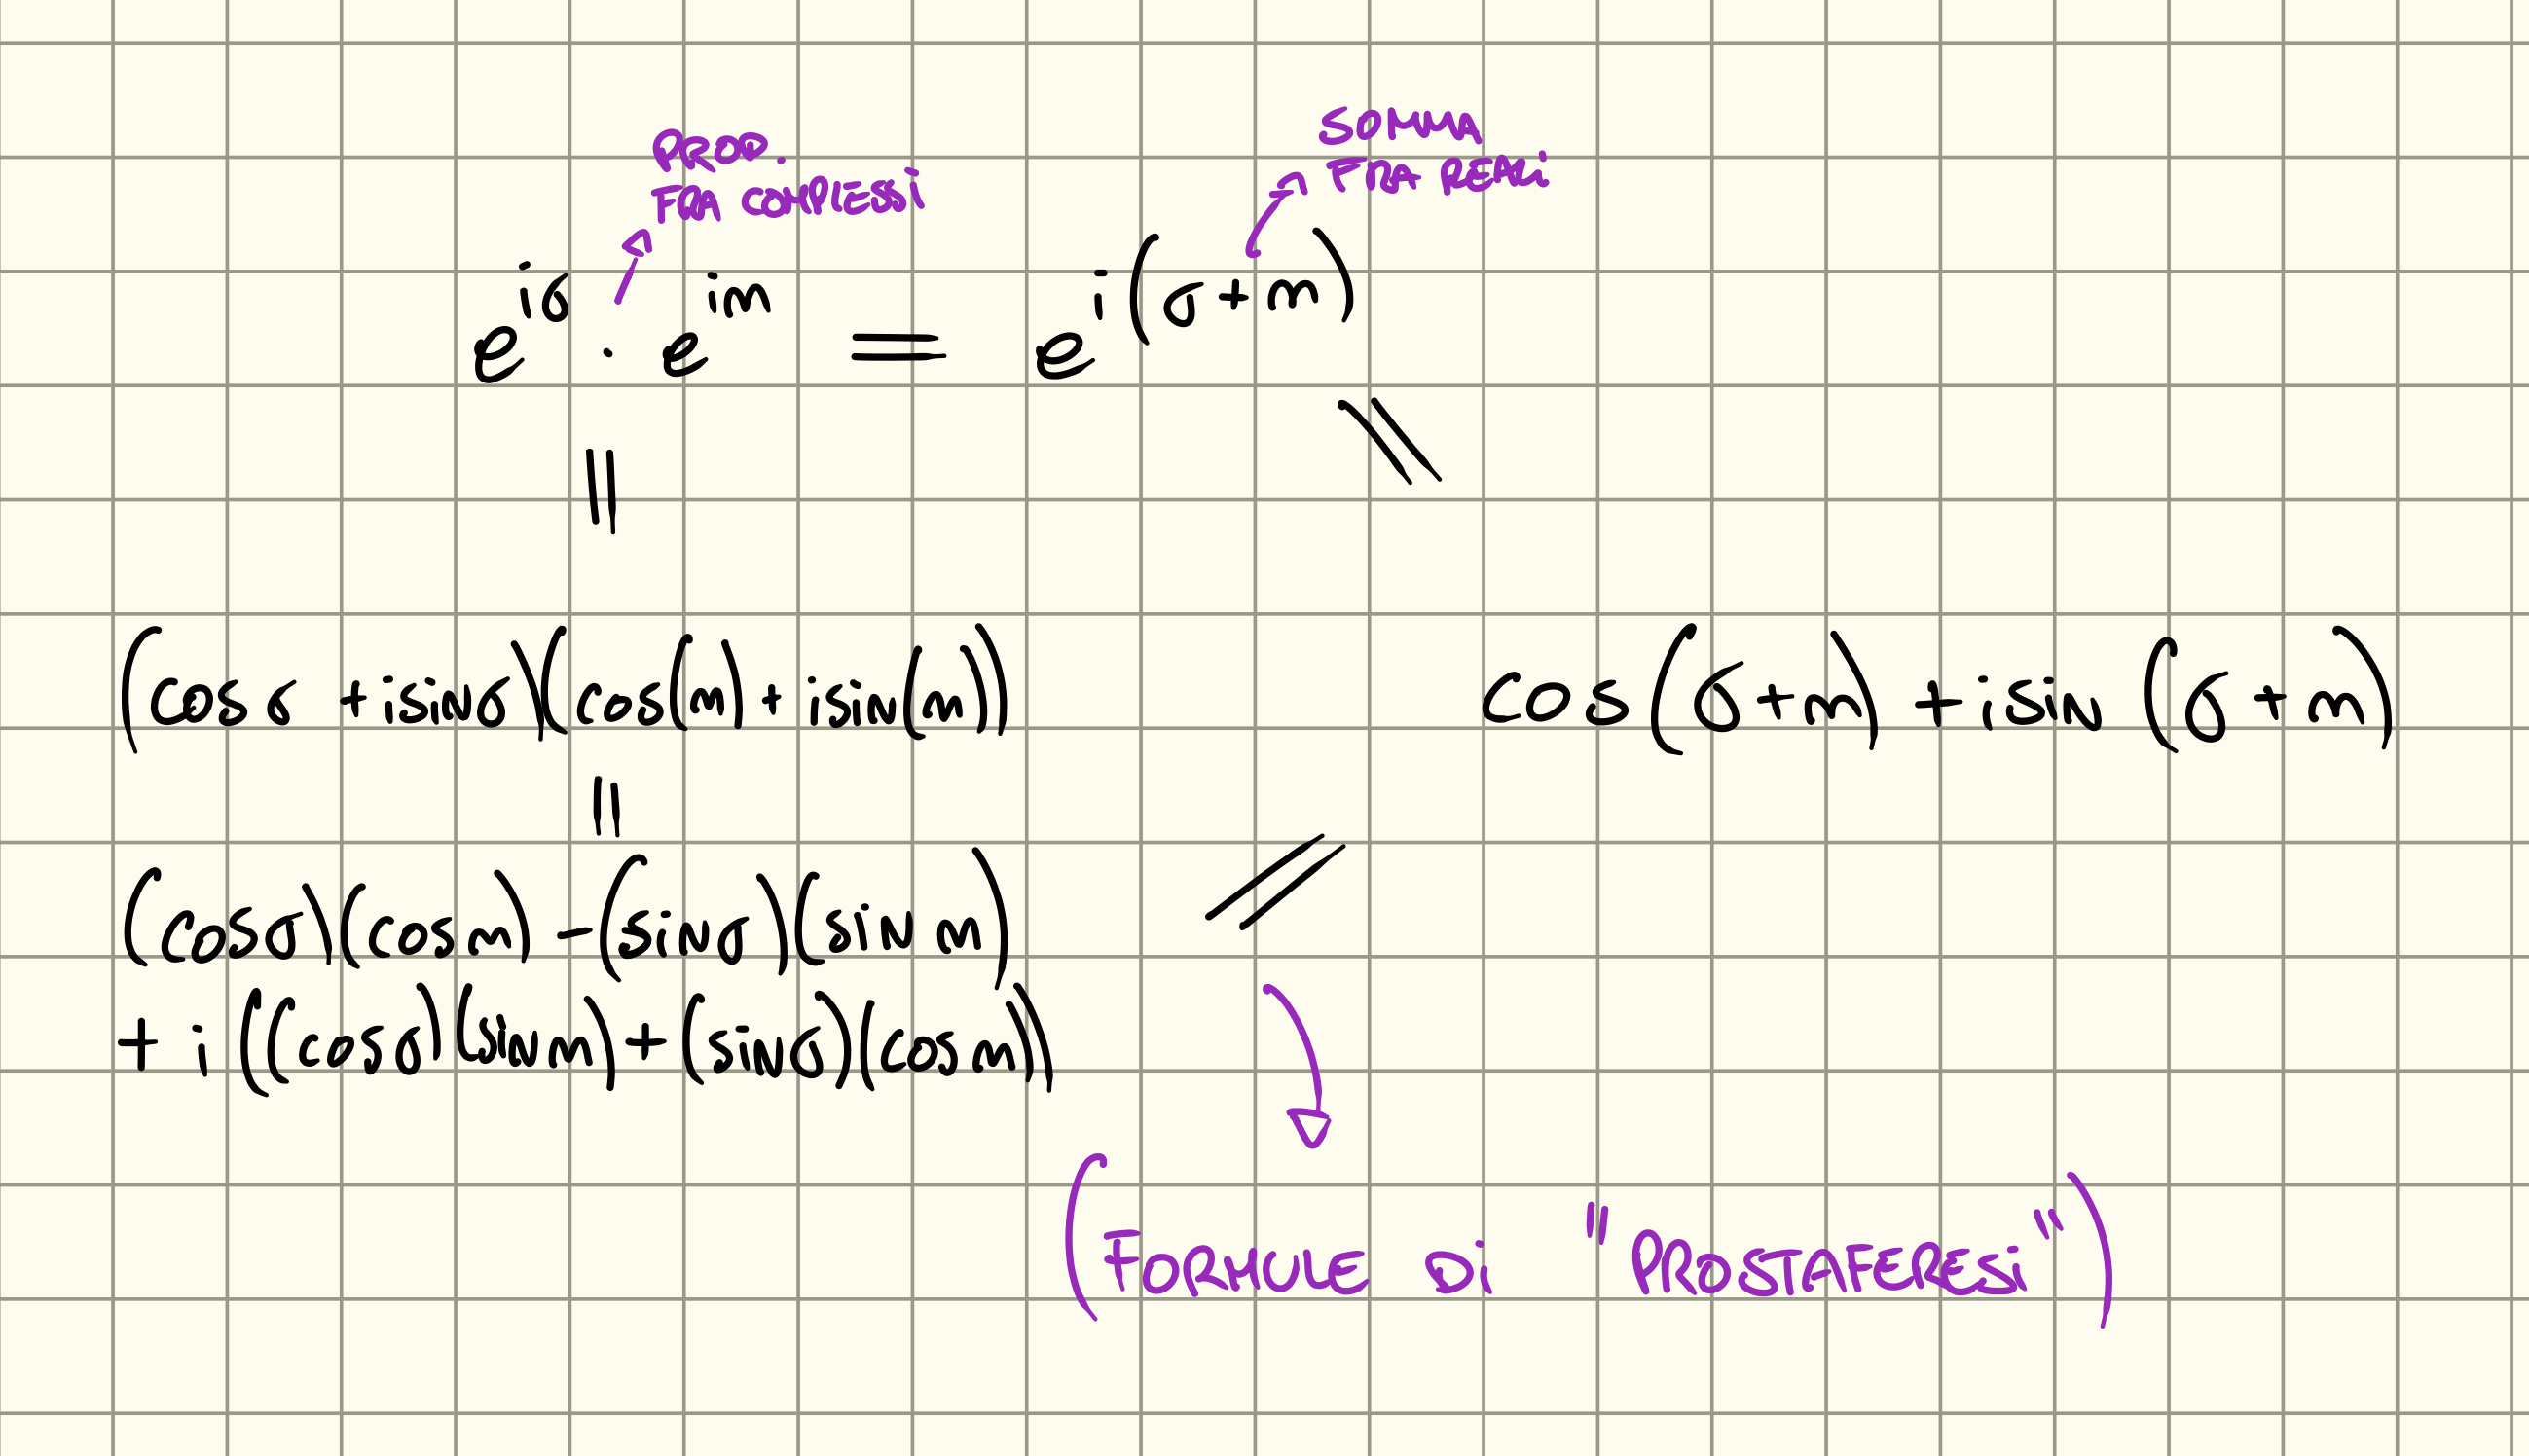 PROD.
FRA COMPLESSI
SOMMA
FRA REALI
e^{iσ} · e^{im} = e^{i(σ+m)}
||
\\
(cos σ + i sin σ)(cos(m) + i sin(m))
cos(σ+m) + i sin(σ+m)
||
(cos σ)(cos m) - (sin σ)(sin m)
//
+ i((cos σ)(sin m) + (sin σ)(cos m))
(FORMULE Di "PROSTAFERESi")